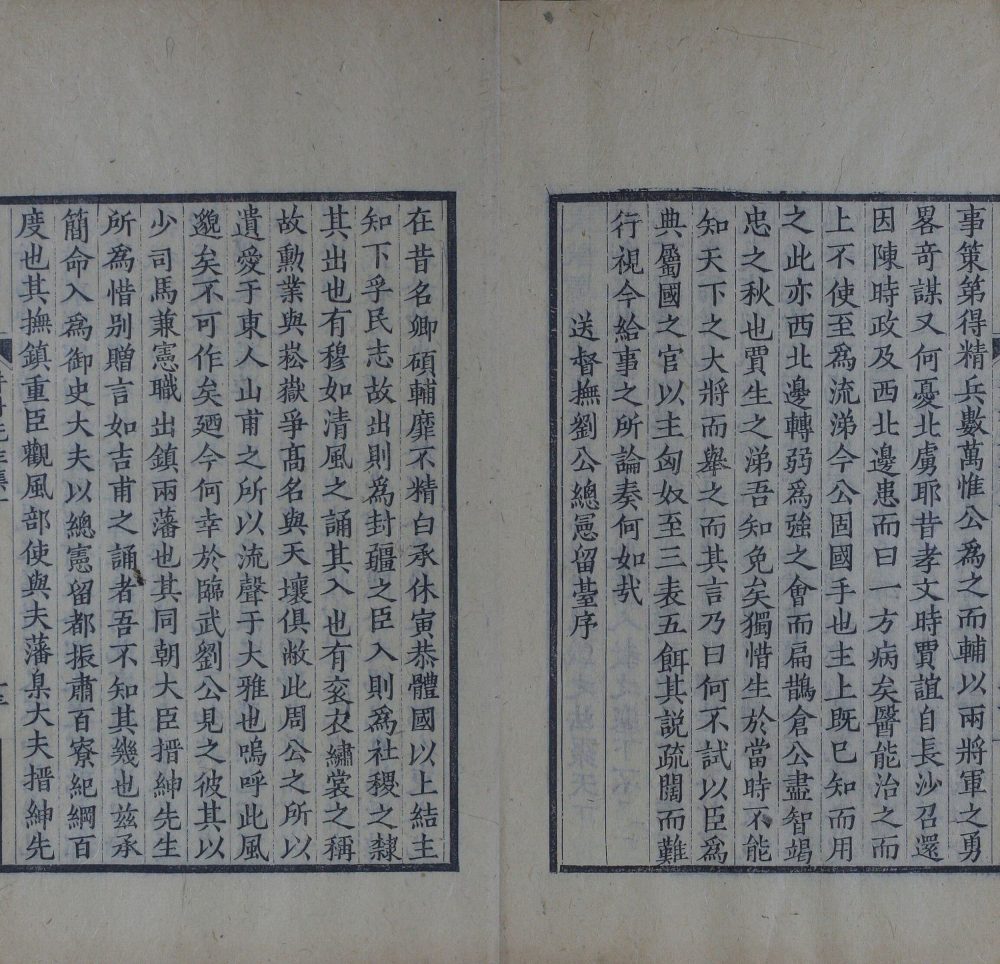 事策第得精兵數萬惟公爲之而輔以兩將軍之勇
畧奇謀又何憂北虜耶昔孝文時賈誼自長沙召還
因陳時政及西北邊患而曰一方病矣醫能治之而
上不使至爲流涕今公固國手也主上既已知而用
之此亦西北邊轉弱爲強之會而扁鵲倉公盡智竭
忠之秋也賈生之涕吾知免矣獨惜生於當時不能
知天下之大將而舉之而其言乃曰何不試以臣爲
典屬國之官以主匈奴至三表五餌其説疏闊而難
行視今給事之所論奏何如哉
送督撫劉公總憲留臺序
在昔名卿碩輔靡不精白承休寅恭體國以上結主
知下孚民志故出則爲封疆之臣入則爲社稷之隸
其出也有穆如清風之誦其入也有衮衣繡裳之稱
故勳業與崧嶽爭髙名與天壤俱敝此周公之所以
遺愛于東人山甫之所以流聲于大雅也嗚呼此風
邈矣不可作矣廼今何幸於臨武劉公見之彼其以
少司馬兼憲職出鎮兩藩也其同朝大臣搢紳先生
所爲惜别贈言如吉甫之誦者吾不知其幾也兹承
簡命入爲御史大夫以總憲留都振肅百寮紀綱百
度也其撫鎮重臣觀風部使與夫藩臬大夫搢紳先